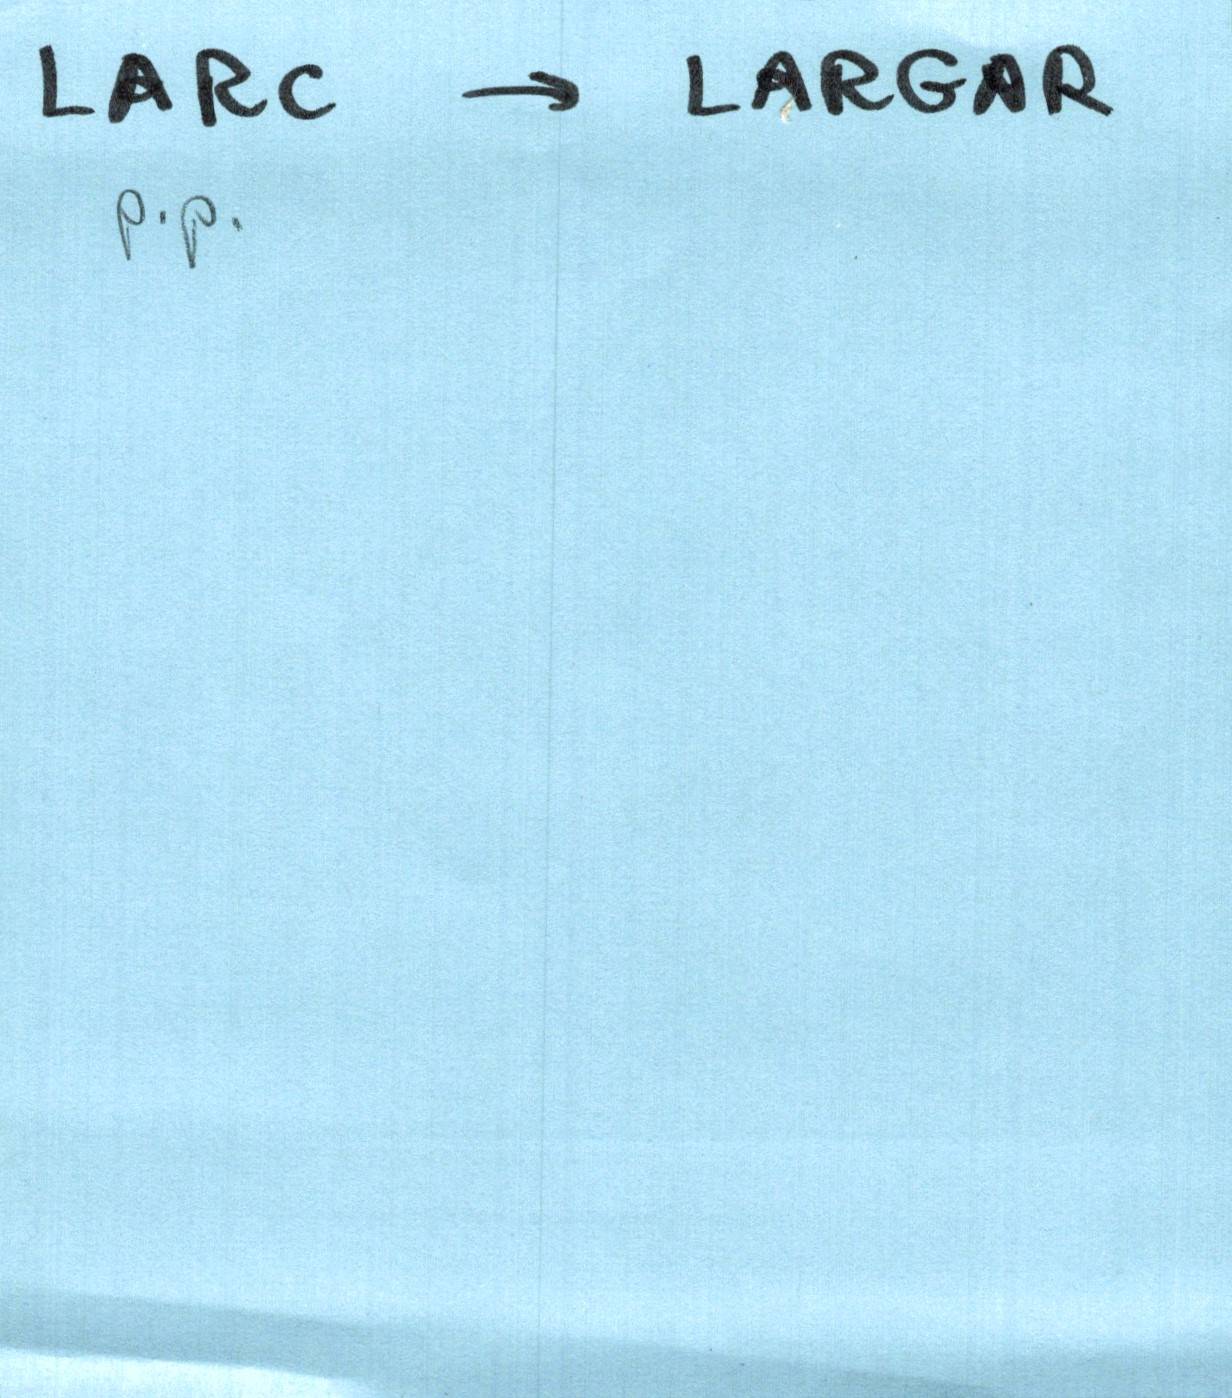 LARC → LARGAR
p.p.